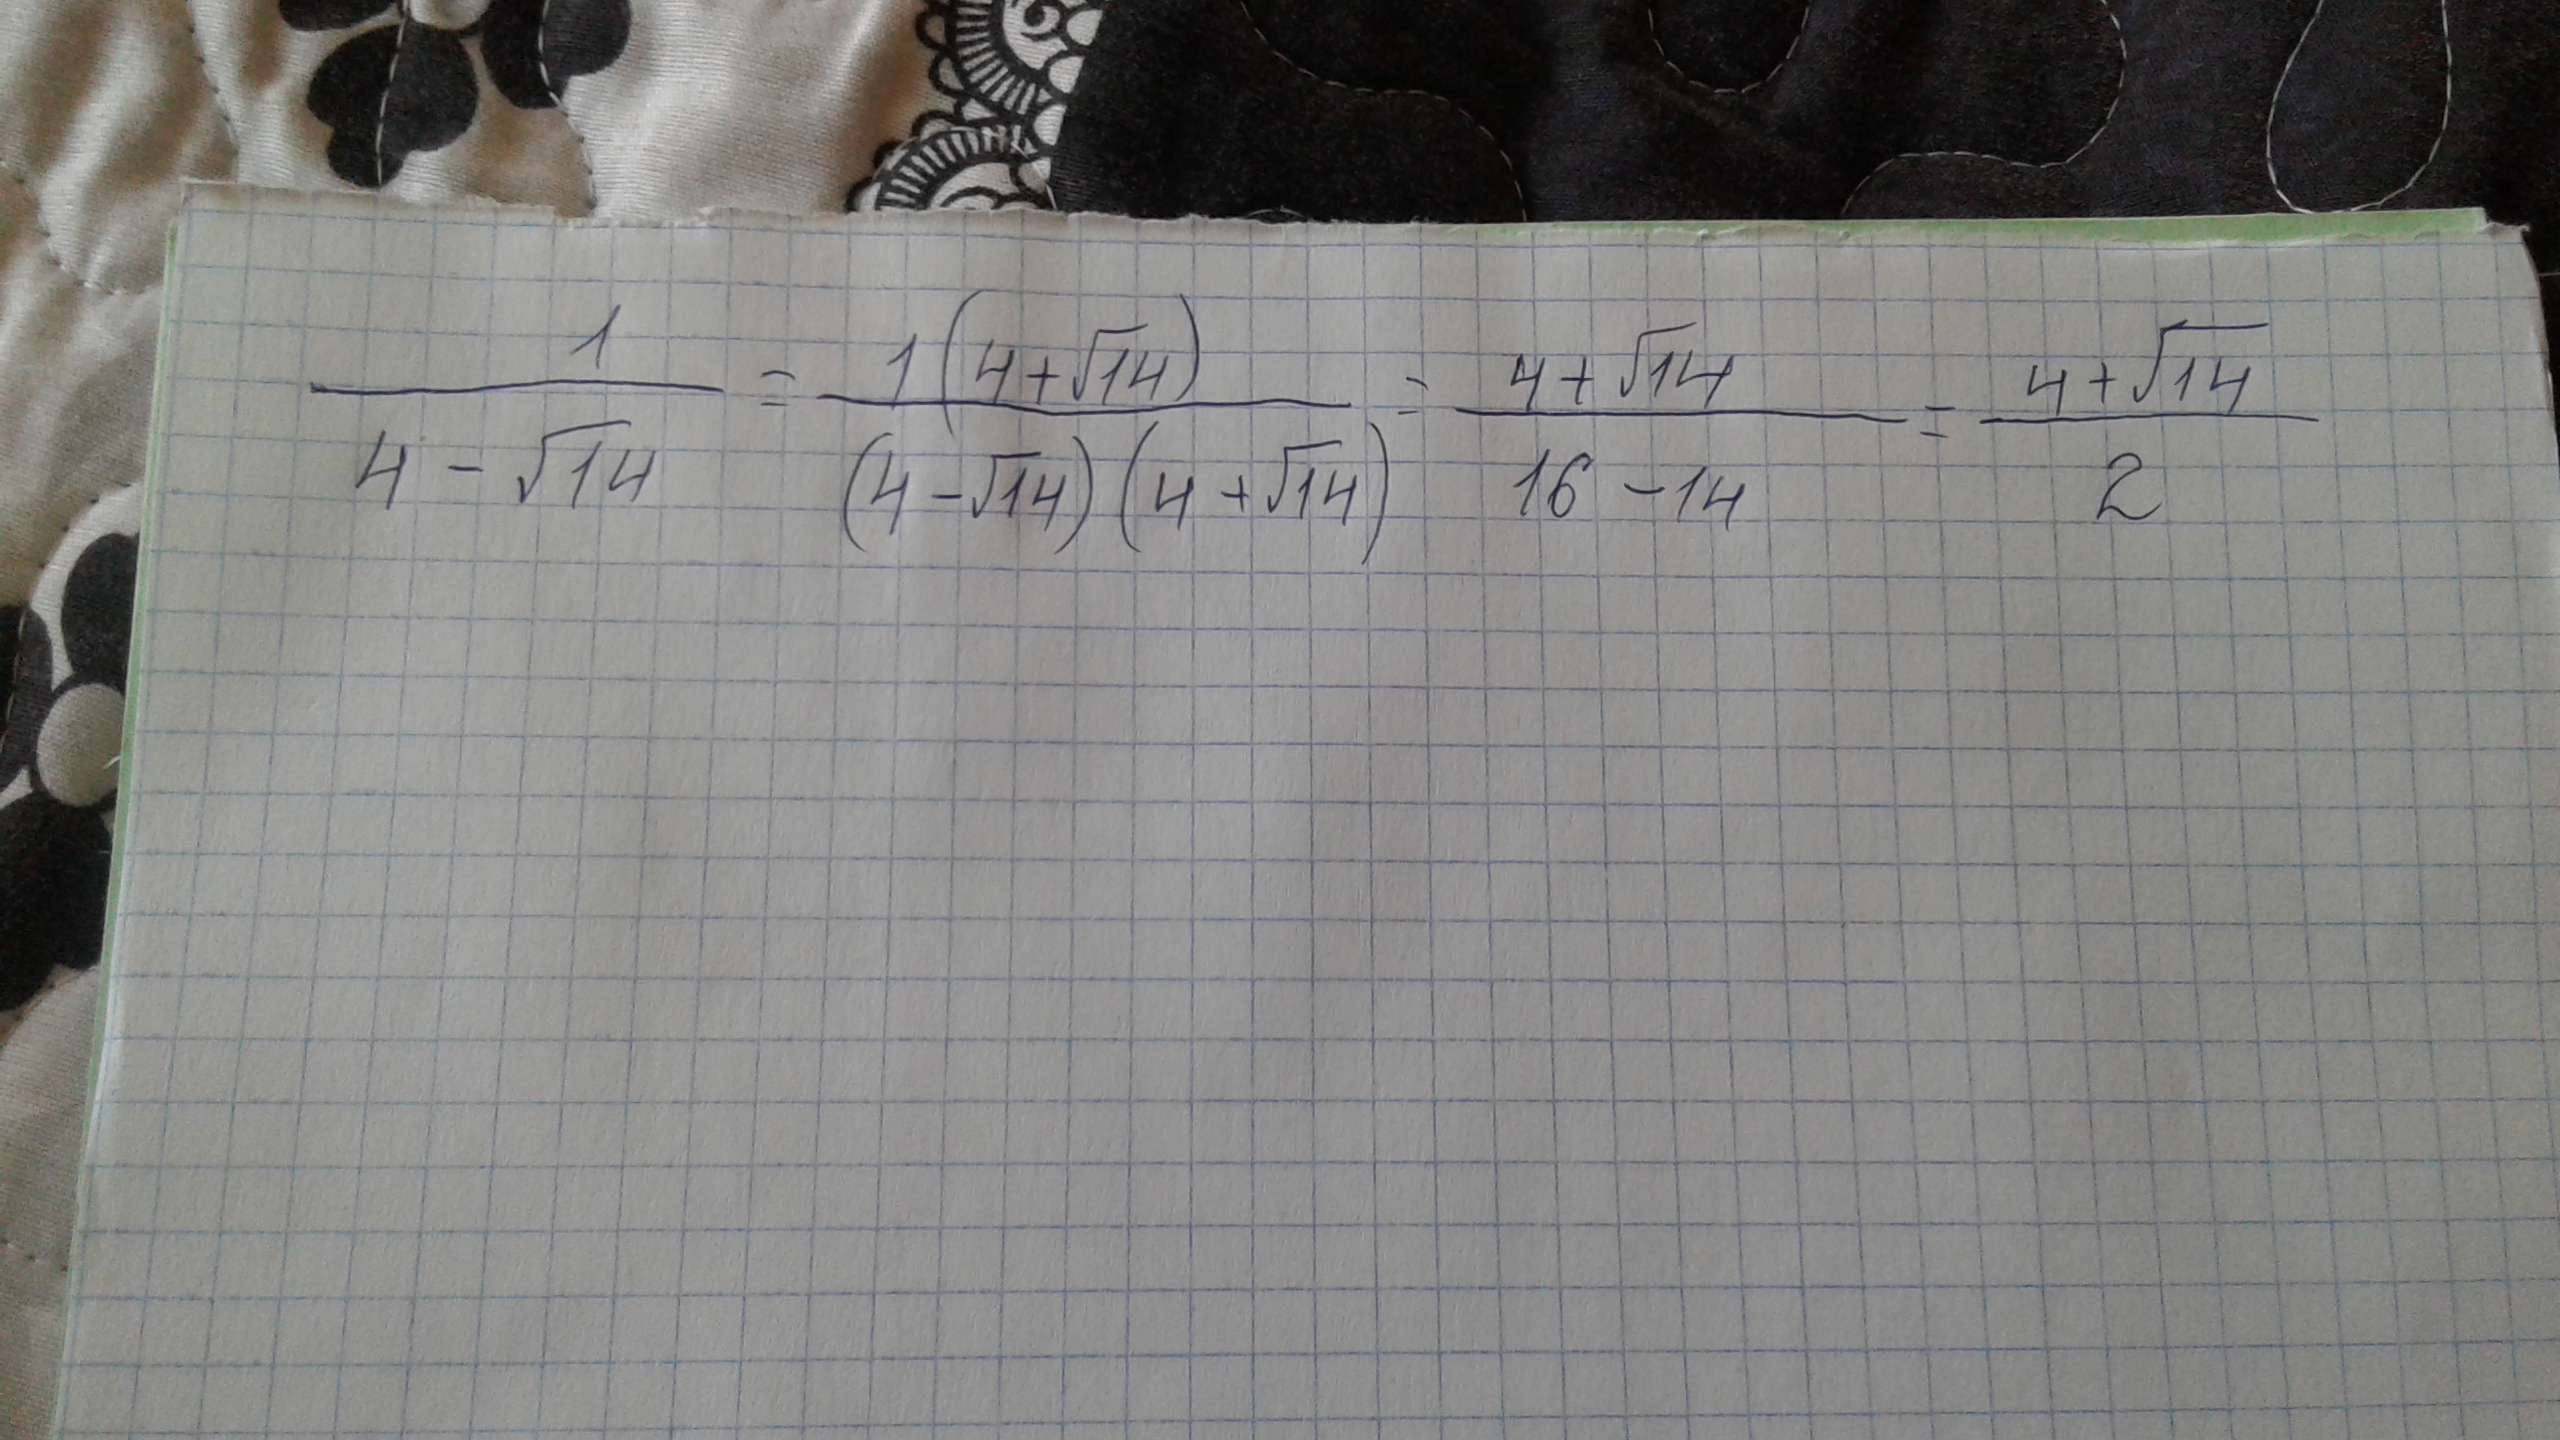 1/(4 - √14) = 1(4 + √14)/((4 - √14)(4 + √14)) = (4 + √14)/(16 - 14) = (4 + √14)/2